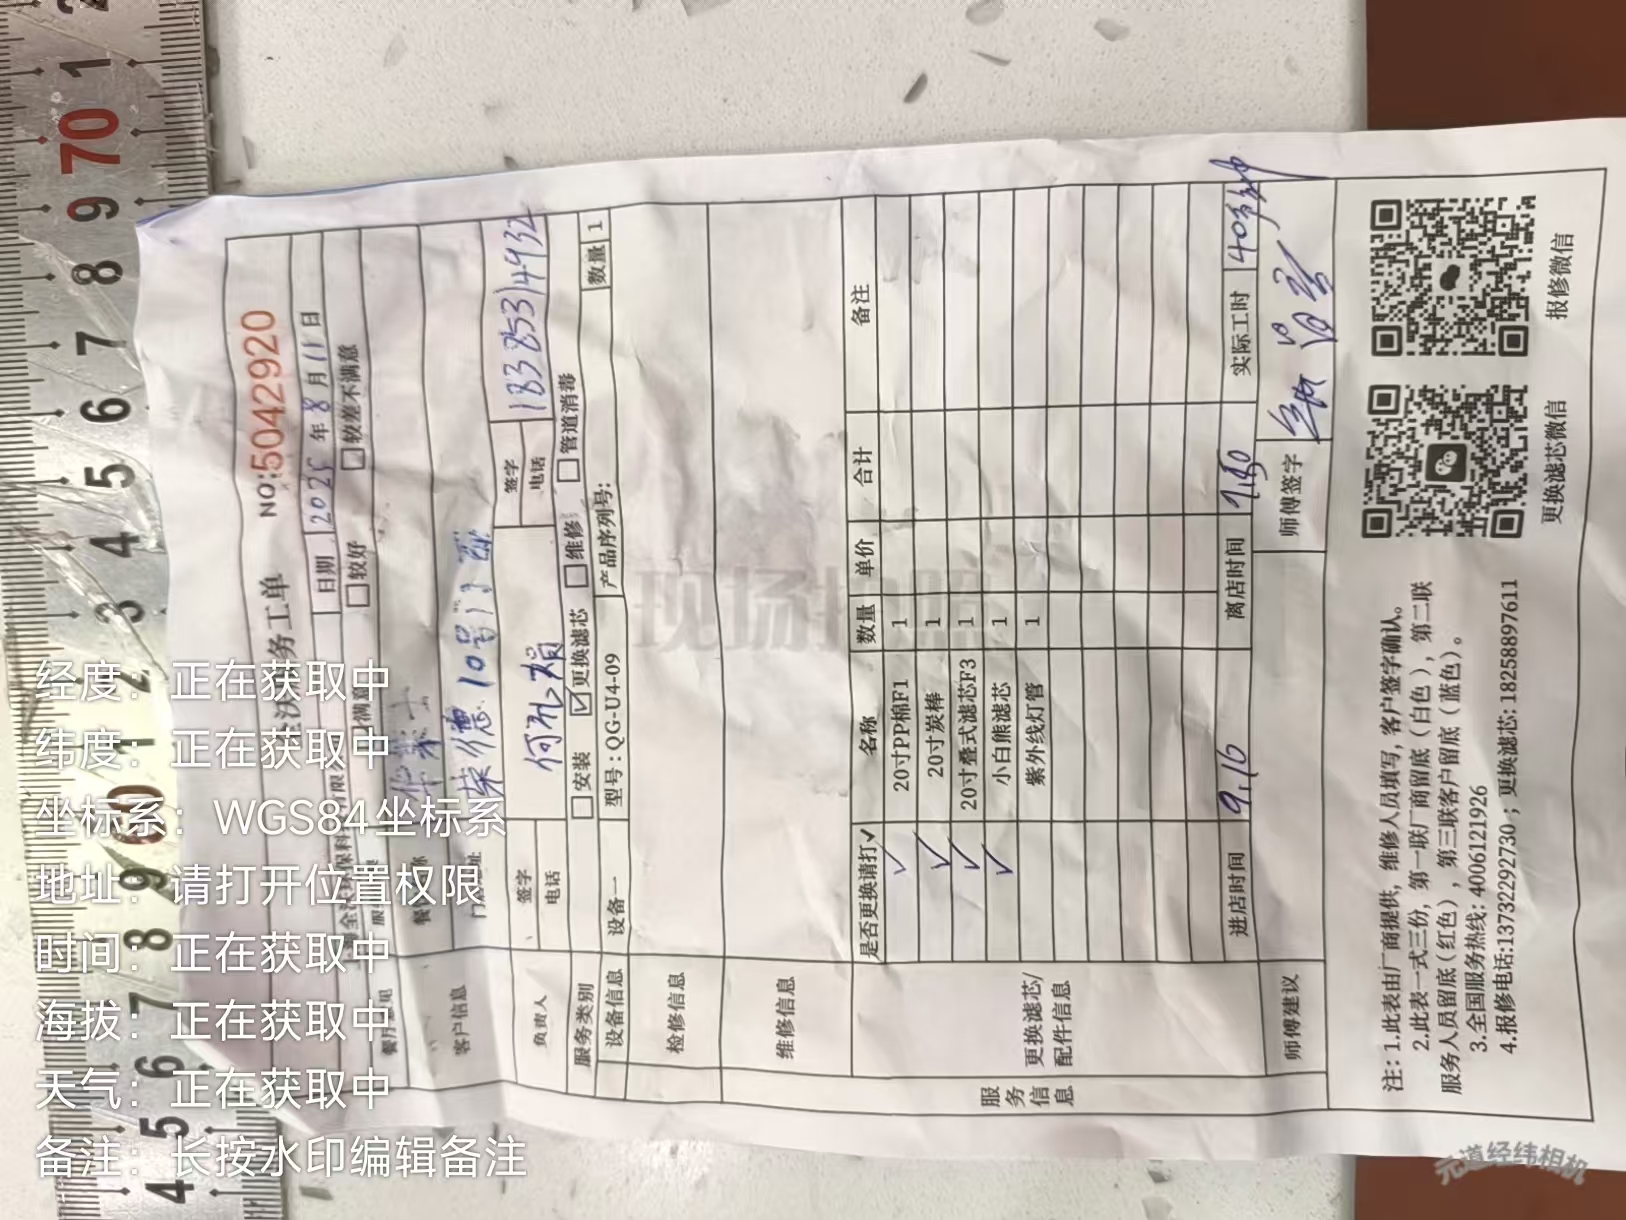 全法服务工单 NO:5042920
日期 2025年8月11日
满意 □较好 □较差不满意
客户信息
华莱士
莱德10号门店
负责人 签字 签字 18385314932
电话 电话
服务类别 □安装 ☑更换滤芯 □维修 □管道消毒
设备信息 设备一 型号:QG-U4-09 产品序列号: 数量 1
检修信息
维修信息
服务信息
更换滤芯/配件信息
是否更换请打✓ 名称 数量 单价 合计 备注
✓ 20寸PP棉F1 1
✓ 20寸炭棒 1
✓ 20寸叠式滤芯F3 1
✓ 小白熊滤芯 1
紫外线灯管 1
进店时间 9.10 离店时间 实际工时 40分钟
师傅建议 师傅签字
注:1.此表由厂商提供,维修人员填写,客户签字确认。
2.此表一式三份,第一联厂商留底(白色),第二联
服务人员留底(红色),第三联客户留底(蓝色)。
3.全国服务热线:4006121926
4.报修电话:13732292730;更换滤芯:18258897611
更换滤芯微信 报修微信
现场拍照
经度:正在获取中
纬度:正在获取中
坐标系:WGS84坐标系
地址:请打开位置权限
时间:正在获取中
海拔:正在获取中
天气:正在获取中
备注:长按水印编辑备注
元道经纬相机
4 5 6 7 8 9 60 1 2 3 4 5 6 7 8 9 70 1 2